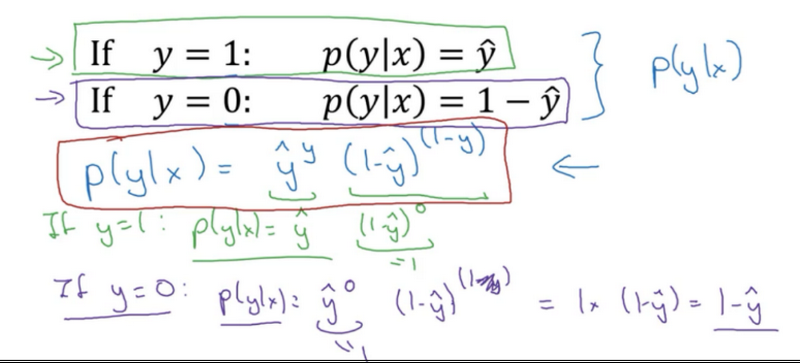 → If y = 1: p(y|x) = ŷ
→ If y = 0: p(y|x) = 1 − ŷ } p(y|x)
p(y|x) = ŷ^y (1-ŷ)^(1-y) ←
If y=1: p(y|x) = ŷ (1-ŷ)^0
=1
If y=0: p(y|x) = ŷ^0 (1-ŷ)^(1-y) = 1x (1-ŷ) = 1-ŷ
=1